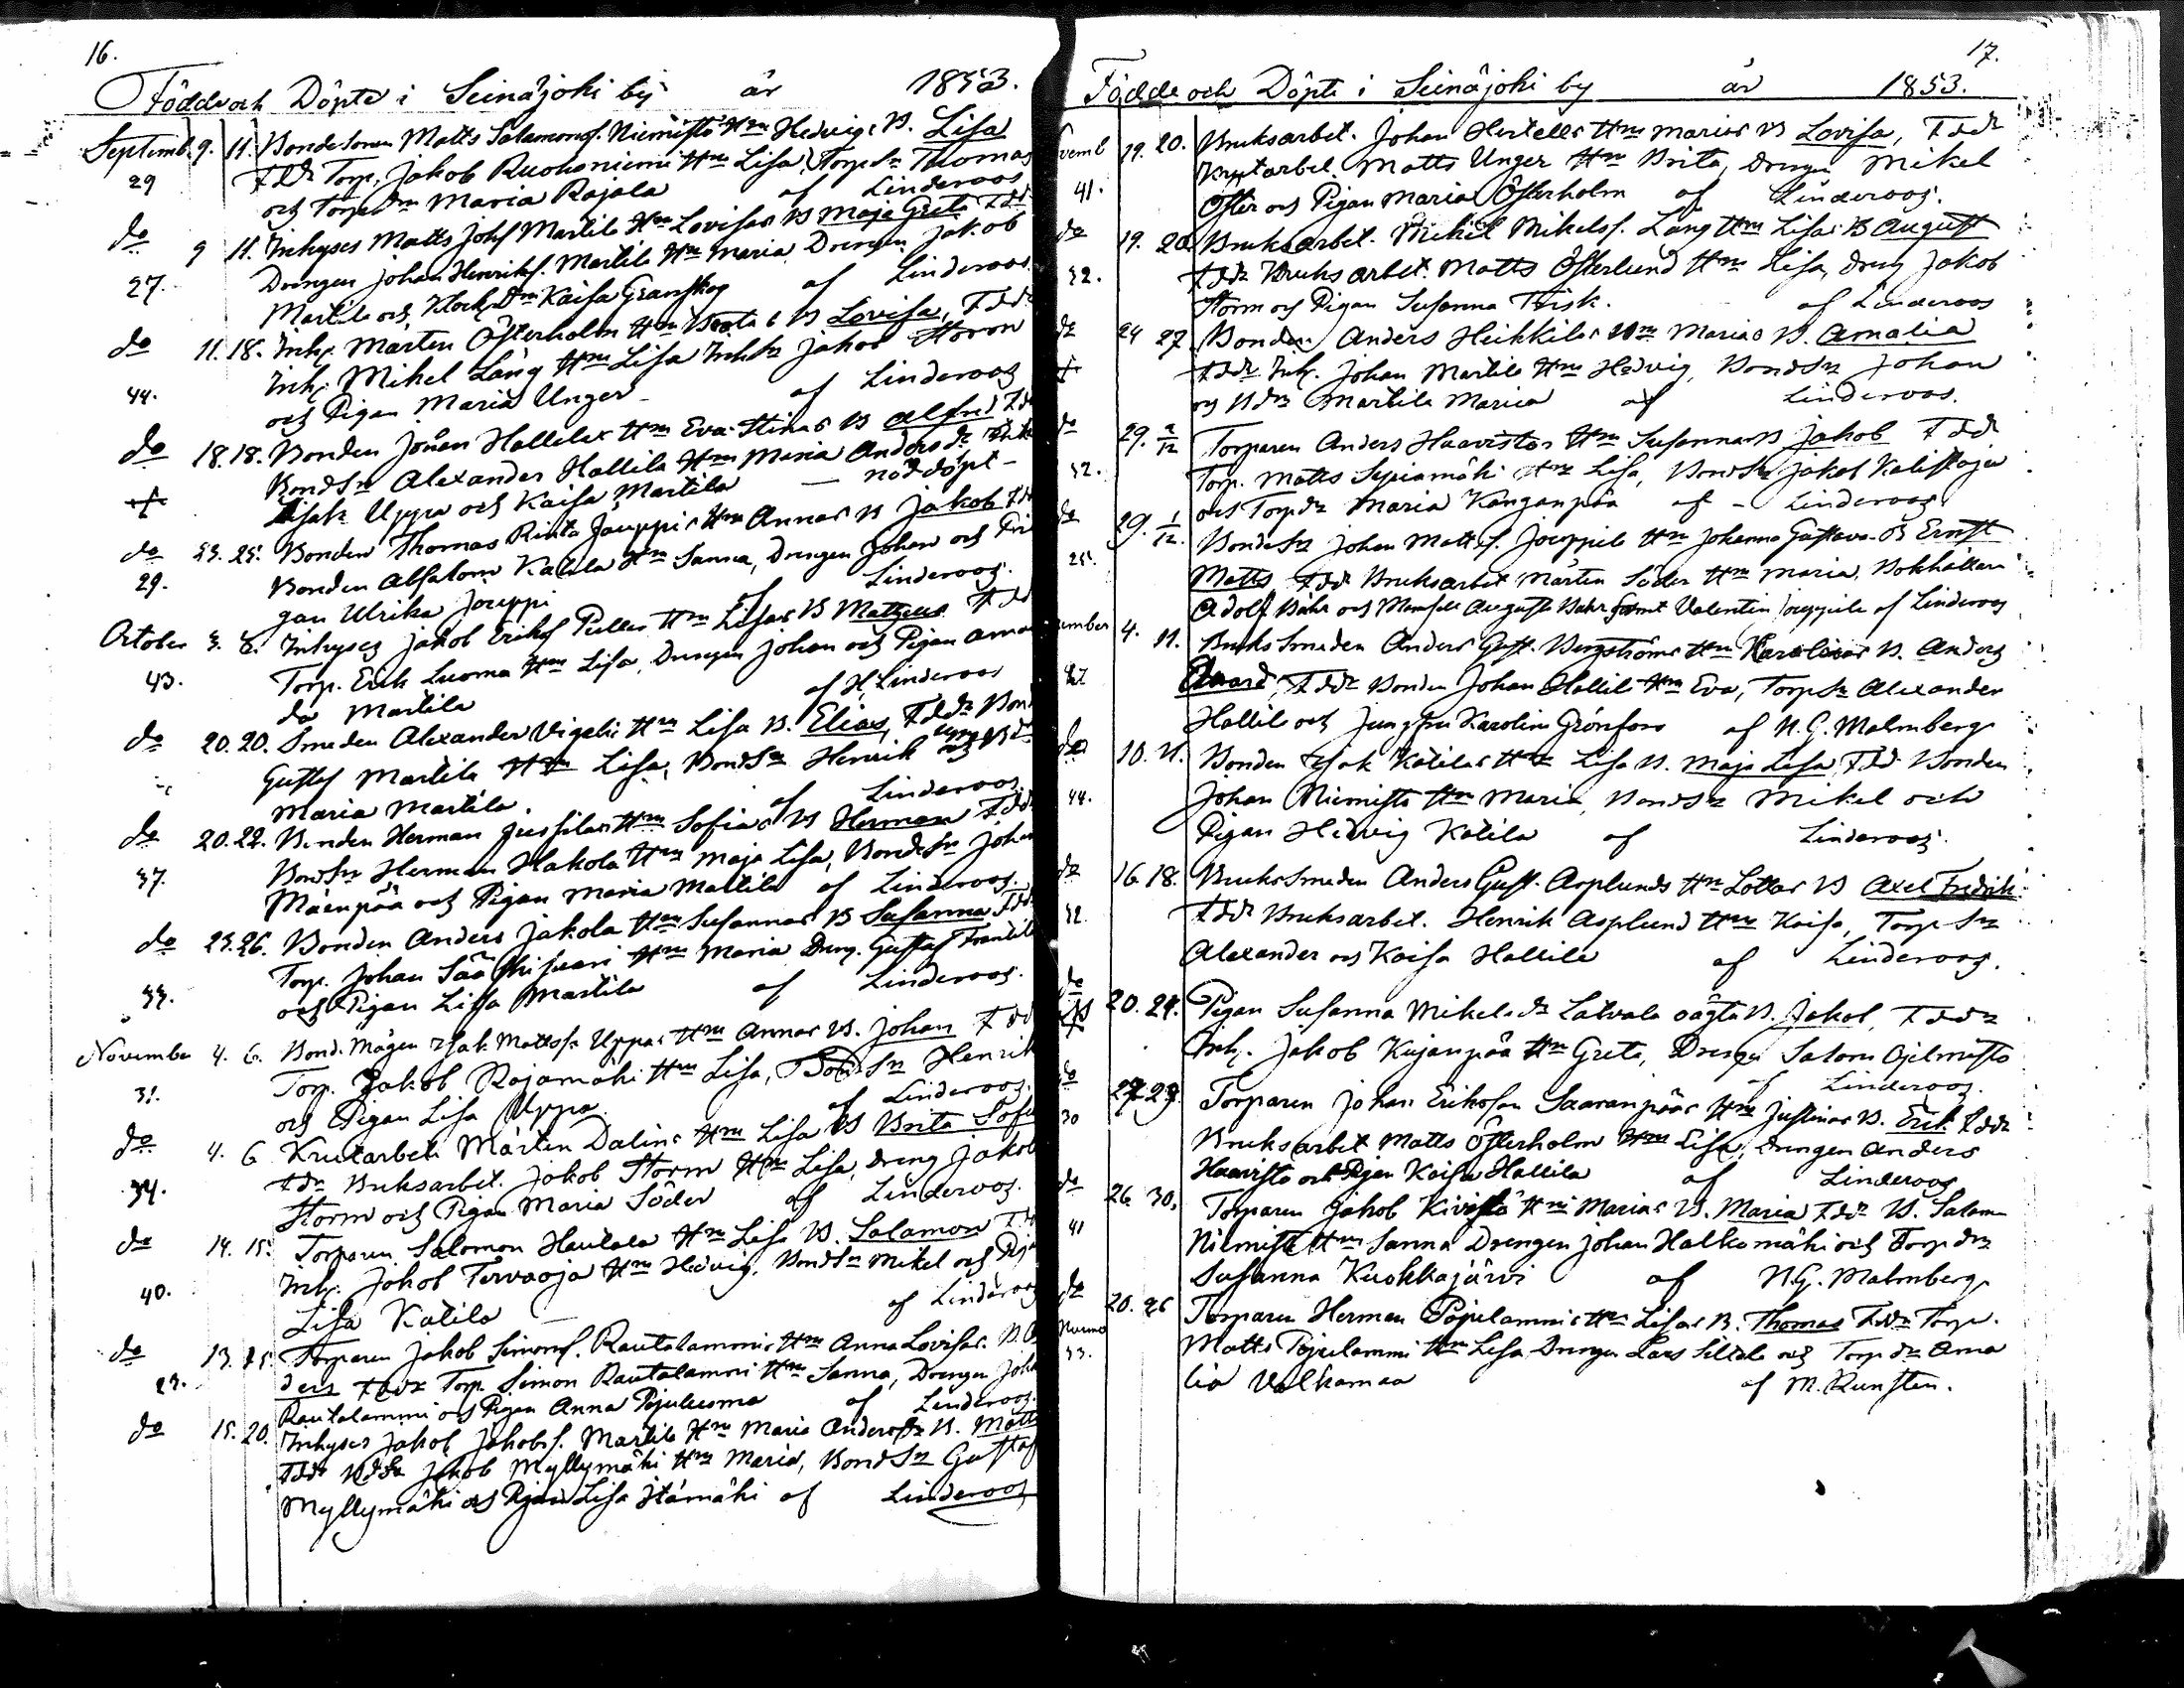 16.
Födde och Döpte i Seinäjoki by år 1853.
Septemb. 9. 11. Bondesonen Matts Salomonss. Niemistö Hu Hedvigs B. Lisa
29 Fddr Torp. Jakob Ruohoniemi Hu Lisa, Torp Sn Thomas
och Torp dn Maria Rajala af Linderoos
do 9 11. Inhyses Matts Johss Martila Hu Lovisas B Maja Greta Fddr
27. Drengen Johan Henrikss. Martila Hu Maria Drengen Jakob
Martila och Klock. dn Kaisa Granskog af Linderoos
do 11. 18. Inh. Mårten Österholm Hu Britas B Lovisa, Fddr
Inh. Mikel Lång Hu Lisa Inh Sn Jakob Storm
44. och Pigan Maria Unger af Linderoos
do 18. 18. Bonden Johan Hallilas Hu Eva Stinas B Alfred Fdr
Bond Sn Alexander Hallila Hu Maria Anders dr
Isak Uppa och Kaisa Martila — nöddöpt —
do 23. 25. Bonden Thomas Rinta Jouppis Hu Annas B Jakob Fdr
29. Bonden Absalom Katila Hu Sanna, Drengen Johan och Pi
gan Ulrika Jouppi af Linderoos.
October 3. 8. Inhyses Jakob Eriks Pelles Hu Lisas B Matheus Fdd
43. Torp. Erik Luoma Hu Lisa, Drengen Johan och Pigan Ama
da Martila af H. Linderoos
do 20. 20. Smeden Alexander Vigelii Hu Lisa B. Elias, Fddr Bond
Gustaf Martila Hu Lisa, Bond Sn Henrik Uppa och B dr
Maria Martila. af Linderoos.
do 20. 22. Bonden Herman Jussilas Hu Sofias B Herman Fddr
37. Bond Sn Herman Hakola Hu Maja Lisa, Bonde Sn Johan
Mäenpää och Pigan Maria Martila af Linderoos.
do 23. 26. Bonden Anders Jakola Hu Susannas B Susanna Fddr
Torp. Johan Sääskisuari Hu Maria Dreng. Gustaf Frantila
33. och Pigan Lisa Martila af Linderoos.
November 4. 6. Bond. Mågen Isak Mattss. Uppas Hu Annas B. Johan Fdd
31. Torp. Jakob Rajamäki Hu Lisa, Bond Sn Henrik
och Pigan Lisa Uppa. af Linderoos.
do 4. 6 Krutarbet. Mårten Dalins Hu Lisa B Brita Sofia
34. Fdr Bruksarbet. Jakob Storm Hu Lisa, dreng Jakob
Storm och Pigan Maria Söder af Linderoos.
do 14. 15. Torparen Salomon Hautala Hu Lisa B. Salamon Fdr
40. Inh. Jakob Tervaoja Hu Hedvig, Bond Sn Mikel och Pigan
Lisa Katila — af Linderoos
do 13. 15. Torparen Jakob Simonss. Rautalammis Hu Anna Lovisas. B. An
23. ders Fddr Torp. Simon Rautalammi Hu Sanna, Drengen Joha
Rautalammi och Pigan Anna Pajuluoma af Linderoos.
do 15. 20. Inhyses Jakob Jakobs. Martila Hu Maria Anders dr B. Matts
Fddr Jakob Myllymäki Hu Maria, Bond Sn Gustaf
Myllymäki och Pigan Lisa Itämäki af Linderoos
17.
Födde och Döpte i Seinäjoki by år 1853.
vemb 19. 20. Bruksarbet. Johan Hertells Hu Marias B Lovisa, Fddr
Krutarbet. Matts Unger Hu Brita, Drengen Mikel
41. Öster och Pigan Maria Österholm af Linderoos.
do 19. 20. Bruksarbet. Mikel Mikelss. Lång Hu Lisas B August
32. Fddr Bruksarbet. Matts Österlund Hu Lisa, Dreng Jakob
Storm och Pigan Susanna Frisk. af Linderoos
do 24 27 Bonden Anders Heikkilas Hu Marias B. Amalia
Fddr Inh. Johan Martila Hu Hedvig, Bond Sn Johan
och B dn Martila Maria af Linderoos.
do 29. 2/12 Torparen Anders Haavistos Hu Susannas B Jakob Fdd
32. Torp. Matts Sepiamäki Hu Lisa, Bond Sn Jakob Kalistaja
och Torp dr Maria Kanganpää af - Linderoos
do 29. 1/12. Bonde Sn Johan Matts. Jouppila Hu Johanna Gustava. B Ernst
25. Matts Fddr Bruksarbet Mårten Söder Hu Maria, Bokhållare
Adolf Bähr och Mamsell Augusta Bähr samt Valentin Jouppila af Linderoos
ember 4. 11. Bruks Smeden Anders Gust. Bergströms Hu Karolinas B. Anders
Edvard, Fddr Bonden Johan Hallila Hu Eva, Torp Sn Alexander
Hallila och Jungfru Karolin Grönfors af N. G. Malmberg
do 10. 11. Bonden Isak Katilas Hu Lisa B. Maja Lisa Fdd. Bonden
44. Johan Niemistö Hu Maria, Bond Sn Mikel och
Pigan Hedvig Katila af Linderoos.
do 16. 18. Bruks Smeden Anders Gust. Asplunds Hu Lottas B Axel Fredrik
32. Fddr Bruksarbet. Henrik Asplund Hu Kaisa, Torp Sn
Alexander och Kaisa Hallila af Linderoos.
do 20. 24. Pigan Susanna Mikels dr Latvala oägta B. Jakob, Fddr
Inh. Jakob Kujanpää Hu Greta, Drengen Salom Ojelmisto
af Linderoos.
do 27. 29. Torparen Johan Eriksson Saaranpääs Hu Justinas B. Erik Fddr
30 Bruksarbet Matts Österholm Hu Lisa, Drengen Anders
Haavisto och Pigan Kaisa Hallila af Linderoos
do 26. 30. Torparen Jakob Kivistö Hu Marias B. Maria Fddr B. Salam
41 Niemistö Hu Sanna Drengen Johan Halkomäki och Torp dr
Susanna Kuokkajärvi af N. G. Malmberg
do 20. 26 Torparen Herman Pajulammis Hu Lisas B. Thomas Fddr Torp.
Nurmo 33. Matts Pajulammi Hu Lisa Drengen Lars Sildala och Torp dr Ama
lia Valkamaa af M. Runsten.